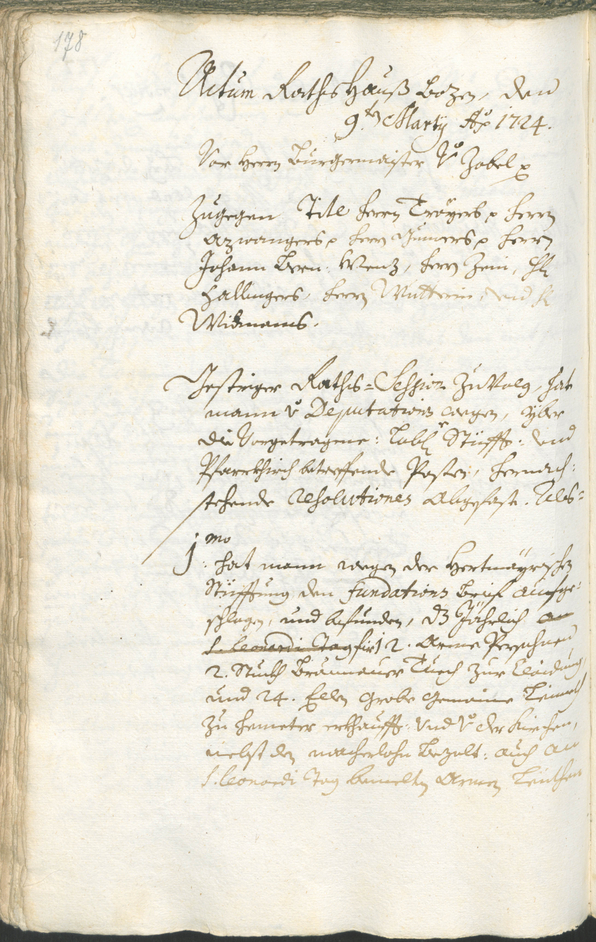 178
Actum RathsHauß Bozen, den
9.ten Marty Ao 1724.
Vor Herrn Bürgermaister v. Zobel
Zugegen Titl Herrn Troyers, Herrn
Azwangers, Herrn Gumers, Herrn
Johann Bern: Wenz, Herrn Zein, H:
Hallingers, Herrn Wutterin, und H:
Widmans.
Gestriger Raths-Session zuvolg, hat
mann v Deputations wegen, yber
die Vorgetragene: Löbl: Stüfft: und
Pfarrkirch betreffende Posten, hernach:
stehende Resolutiones abgefast. Als:
1mo
: hat mann wegen der Hertmayrischen
Stüfftung den fundations brief aufge:
schlagen, und befunden, dz Jährlich an
S: Leonardi Tag für 12. Arme Persohnen
2. Stuckh Braunauer Tuech zur Claidung,
und 24. Ellen grobe gemaine Leinwath
zu Hemeter erkhaufft: und v der Kirchen,
nebst den macherlohn bezalt: auch an
S: Leonardi Tag bemelten Armen Leüthen